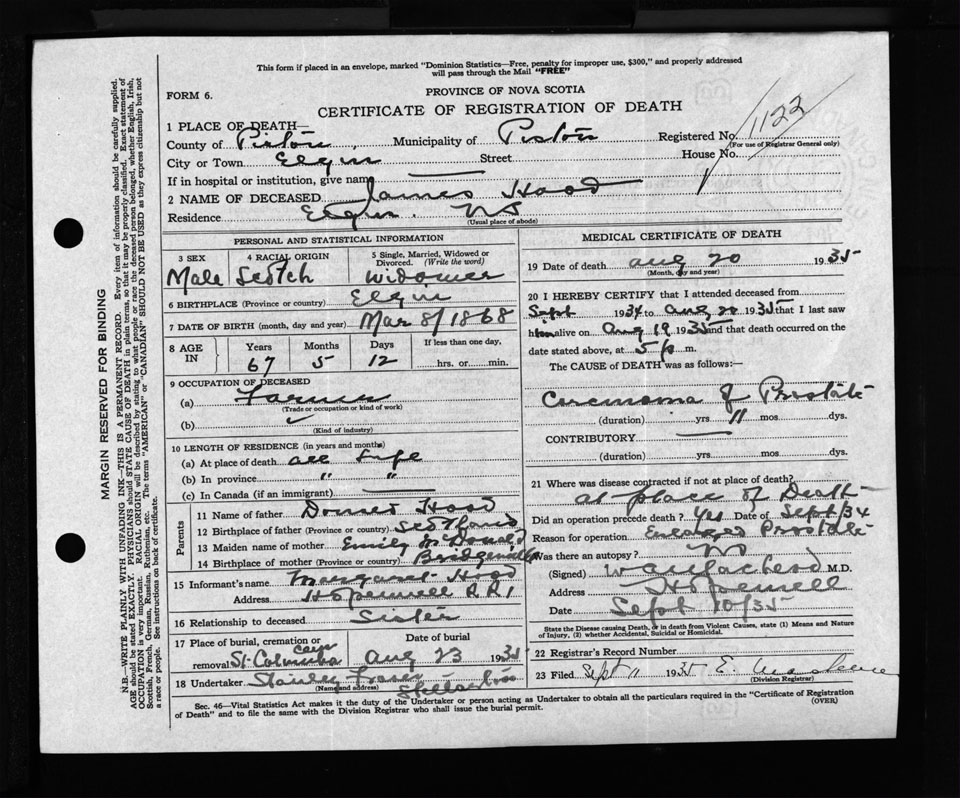 This form if placed in an envelope, marked "Dominion Statistics—Free, penalty for improper use, $300," and properly addressed
will pass through the Mail "FREE"
FORM 6.
PROVINCE OF NOVA SCOTIA
CERTIFICATE OF REGISTRATION OF DEATH
1 PLACE OF DEATH—
County of Pictou, Municipality of Pictou Registered No. 1122
(For use of Registrar General only)
City or Town Elgin Street House No.
If in hospital or institution, give name
2 NAME OF DECEASED James Hood
Residence Elgin. NS
(Usual place of abode)
PERSONAL AND STATISTICAL INFORMATION
3 SEX Male
4 RACIAL ORIGIN Scotch
5 Single, Married, Widowed or
Divorced. (Write the word)
Widower
6 BIRTHPLACE (Province or country) Elgin
7 DATE OF BIRTH (month, day and year) Mar 8/1868
8 AGE IN
Years Months Days If less than one day,
67 5 12 hrs. or min.
9 OCCUPATION OF DECEASED
(a) Farmer
(Trade or occupation or kind of work)
(b)
(Kind of industry)
10 LENGTH OF RESIDENCE (in years and months)
(a) At place of death all Life
(b) In province " "
(c) In Canada (if an immigrant)
Parents
11 Name of father Hood
12 Birthplace of father (Province or country) Scotland
13 Maiden name of mother Emily McDonald
14 Birthplace of mother (Province or country) Bridgeville
15 Informant's name Margaret Hood
Address Hopewell R.R 1
16 Relationship to deceased Sister
17 Place of burial, cremation or
removal St. Columba cem
Date of burial
Aug 23 1935
18 Undertaker Stanley Fraser Stellarton
(Name and address)
MEDICAL CERTIFICATE OF DEATH
19 Date of death aug 20 1935
(Month, day and year)
20 I HEREBY CERTIFY that I attended deceased from
Sept 1934 to aug 20 1935 that I last saw
him alive on Aug 19 1935 and that death occurred on the
date stated above, at 5 p m.
The CAUSE of DEATH was as follows:—
Carcinoma of Prostate
(duration) yrs. 11 mos. dys.
CONTRIBUTORY
(duration) yrs. mos. dys.
21 Where was disease contracted if not at place of death?
at place of Death
Did an operation precede death? Yes Date of Sept/34
Reason for operation Enlarged Prostate
Was there an autopsy? No
(Signed) M.D.
Address Hopewell
Date Sept 10/35
State the Disease causing Death, or in death from Violent Causes, state (1) Means and Nature
of Injury, (2) whether Accidental, Suicidal or Homicidal.
22 Registrar's Record Number
23 Filed Sept 11 1935 E.
(Division Registrar)
Sec. 46—Vital Statistics Act makes it the duty of the Undertaker or person acting as Undertaker to obtain all the particulars required in the "Certificate of Registration
of Death" and to file the same with the Division Registrar who shall issue the burial permit.
(OVER)
MARGIN RESERVED FOR BINDING
N.B.—WRITE PLAINLY WITH UNFADING INK—THIS IS A PERMANENT RECORD. Every item of information should be carefully supplied.
AGE should be stated EXACTLY. PHYSICIANS should STATE CAUSE OF DEATH in plain terms, so that it may be properly classified. Exact statement of
OCCUPATION is very important. RACIAL ORIGIN will be described by stating to what people or race the deceased person belonged, whether English, Irish,
Scottish, French, German, Russian, Ruthenian, etc. The terms "AMERICAN" or "CANADIAN" SHOULD NOT BE USED as they express citizenship but not
a race or people. See instructions on back of certificate.